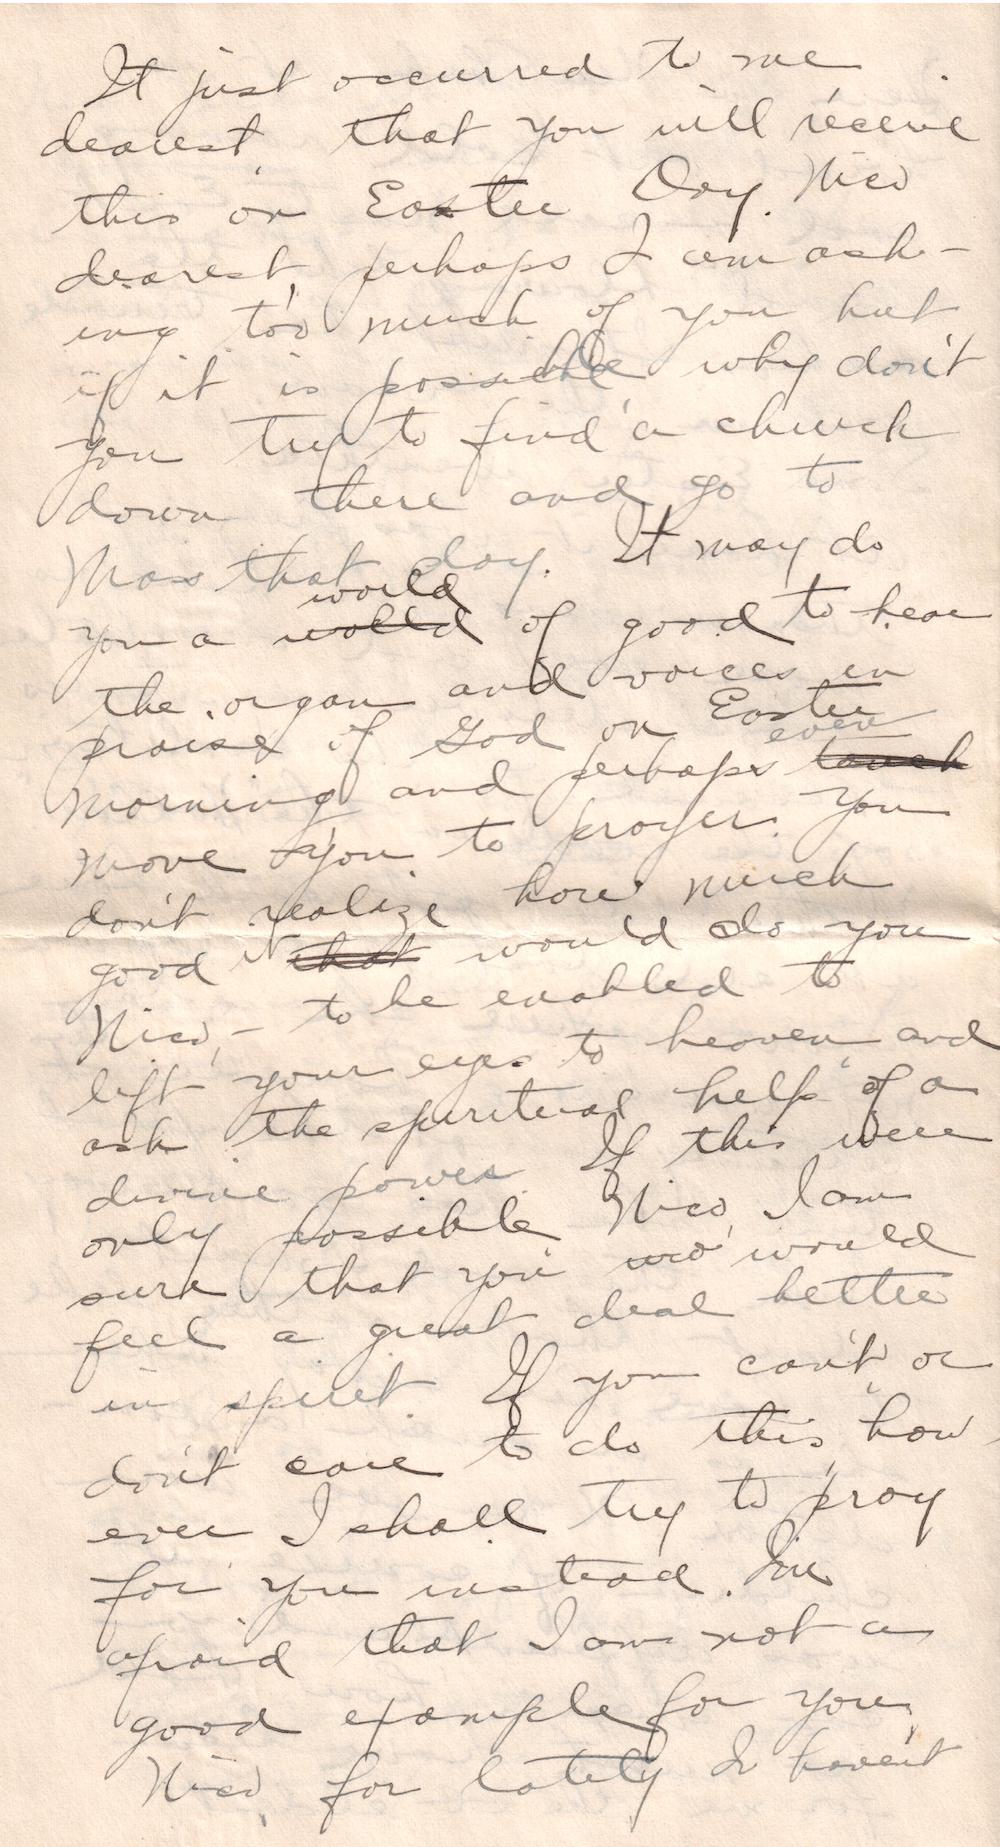 It just occurred to me
dearest, that you will receive
this on Easter Day. Nico
dearest, perhaps I am ask-
ing too much of you but
if it is possible why don't
you try to find a church
down there and go to
Mass that day. It may do
world
you a wolld of good to hear
the organ and voices in
praise of God on Easter
even
morning and perhaps touch
move you to prayer. You
don't realize how much
good it that would do you
Nico, - to be enabled to
lift your eyes to heaven and
ask the spiritual help of a
divine power. If this were
only possible Nico, I am
sure that you woo would
feel a great deal better
in spirit. If you can't or
don't care to do this, how
ever I shall try to pray
for you instead. I'm
afraid that I am not a
good example for you,
Nico, for lately I haven't